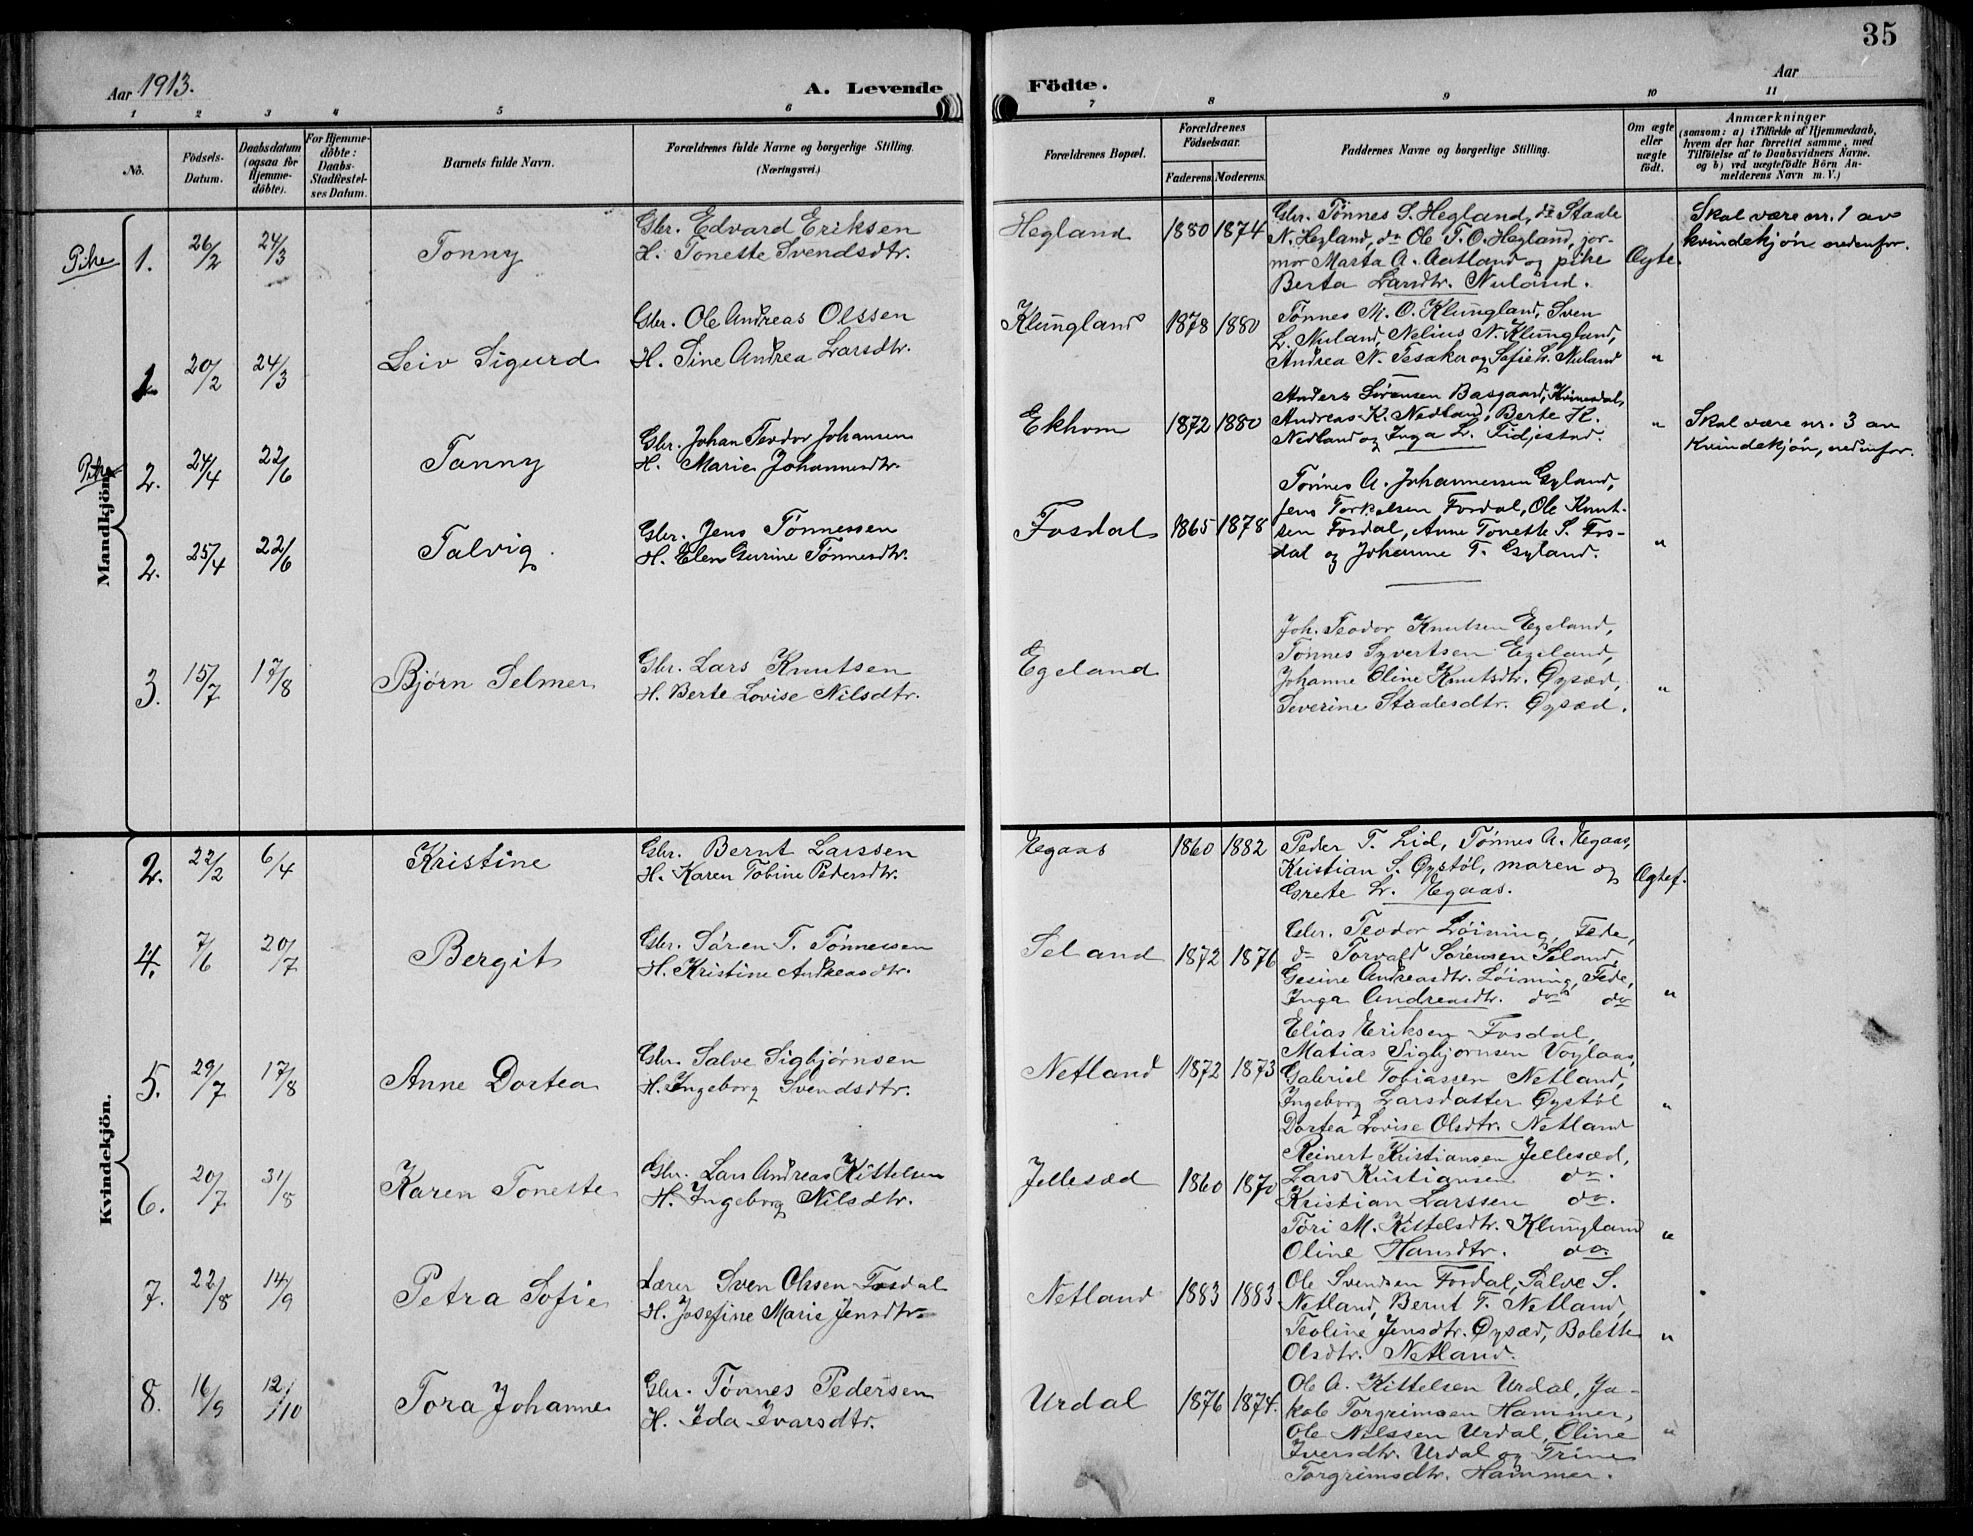 35
Aar 1913.
A. Levende Födte.
Aar
1 2 3 4 5 6 7 8 9 10 11
No.
Födsels-
Datum.
Daabsdatum
(ogsaa for
Hjemme-
döbte).
For Hjemme-
döbte:
Daabs-
Stadfæstel-
ses Datum.
Barnets fulde Navn.
Forældrenes fulde Navne og borgerlige Stilling.
(Næringsvei.)
Forældrenes Bopæl.
Forældrenes
Födselsaar.
Faderens. Moderens.
Faddernes Navne og borgerlige Stilling.
Om ægte
eller
uægte
födt.
Anmærkninger
(saasom: a) i Tilfælde af Hjemmedaab,
hvem der har forrettet samme, med
Tilföielse af to Daabsvidners Navne.
og b) ved uegtefödte Börn An-
melderens Navn m. V.)
Mandkjön.
Pike 1. 26/2 24/3 Tonny
Gbr. Edvard Eriksen
H. Tonette Svendsdtr.
Hegland 1880 1874
Gbr. Tønnes S. Hegland, do Staale
N. Hegland, do Ole T. O. Hegland, jor-
mor Marta A. Aatland og pike
Berta Larsdtr. Nuland.
Ægte.
Skal være nr. 1 av
kvindekjøn nedenfor.
1. 20/2 24/3 Leiv Sigurd
Gbr. Ole Andreas Olssen
H. Sine Andrea Larsdtr.
Klungland 1878 1880
Tønnes M. O. Klungland, Sven
L. Nuland, Nelius N. Klungland,
Andrea N. Tesaker og Sofie L. Nuland
"
Pike 2. 24/4 22/6 Tanny
Gbr. Johan Teodor Johansen
H. Marie Johannesdtr.
Ekhom 1872 1880
Anders Sørensen Basgaard, Kvinesdal,
Andreas K. Nedland, Berte H.
Nedland og Inga L. Fidjestad.
"
Skal være nr. 3 av
Kvindekjøn, nedenfor.
2. 25/4 22/6 Talvig.
Gbr. Jens Tønnessen
H. Elen Gurine Tønnesdtr.
Fosdal 1865 1878
Tønnes A. Johannessen Gyland,
Jens Torkelsen Fosdal, Ole Knut-
sen Fosdal, Anne Tonette S. Fos-
dal og Johanne T. Gyland.
"
3. 15/7 17/8 Bjørn Selmer
Gbr. Lars Knutsen
H. Berte Lovise Nilsdtr.
Egeland
Joh. Teodor Knutsen Egeland,
Tønnes Syvertsen Egeland,
Johanne Oline Knutsdtr. Øysæd,
Severine Staalesdtr. Øysæd.
"
Kvindekjön.
2. 22/2 6/4 Kristine
Gbr. Bernt Larssen
H. Karen Tobine Pedersdtr.
Egaas 1860 1882
Peder T. Lid, Tønnes A. Egaas,
Kristian S. Øystøl, maren og
Grete L. Egaas.
Ægtef.
4. 7/6 20/7 Bergit
Gbr. Søren T. Tønnessen
H. Kristine Andreasdtr.
Seland 1872 1876
Gbr. Teodor Løining, Fede,
do Torvald Sørensen Seland,
Gesine Andreasdtr. Løining, Fede,
Inga Andreasdtr. do do
"
5. 29/7 17/8 Anne Dortea
Gbr. Salve Sigbjørnsen
H. Ingeborg Svendsdtr.
Netland 1872 1873
Elias Eriksen Fosdal,
Matias Sigbjørnsen Voylaas,
Gabriel Tobiassen Netland,
Ingeborg Larsdatter Øystøl
Dortea Lovise Olsdtr. Netland
"
6. 20/7 31/8 Karen Tonette
Gbr. Lars Andreas Kittelsen
H. Ingeborg Nilsdtr.
Jellesæd 1860 1870
Reinert Kristiansen Jellesæd,
Lars Kristiansen do.
Kristian Larssen do.
Tori M. Kittelsdtr. Klungland
Oline Hansdtr. do.
"
7. 22/8 14/9 Petra Sofie
Lærer Sven Olssen Fosdal
H. Josefine Marie Jensdtr.
Netland 1883 1883
Ole Svendsen Fosdal, Salve S.
Netland, Bernt T. Netland,
Teoline Jensdtr. Øysæd, Bolette
Olsdtr. Netland.
"
8. 16/9 12/10 Tora Johanne
Gbr. Tønnes Pedersen
H. Ida Ivarsdtr.
Urdal 1876 1874.
Ole A. Kittelsen Urdal, Ja-
kob Torgrimsen Hammer,
Ole Nilssen Urdal, Oline
Iversdtr. Urdal og Trine
Torgrimsdtr. Hammer.
"